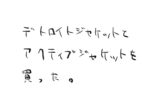 デトロイトジャケットと
アクティブジャケットを
買った。